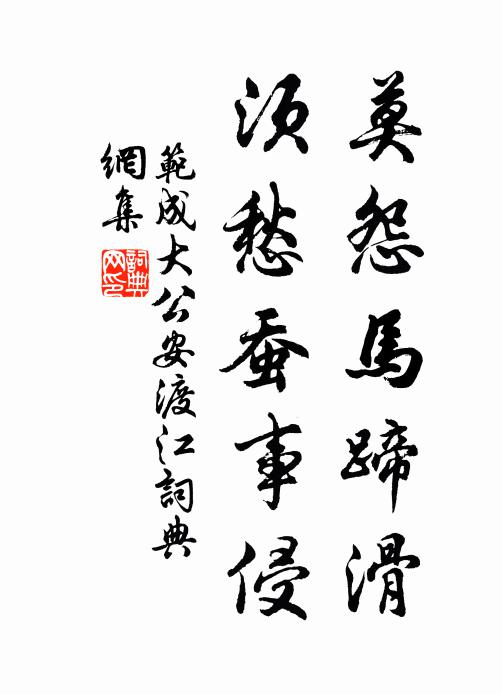 莫怨馬蹄滑
須愁蚕事侵
範成大公安渡江詞典
網集
詞典
网印